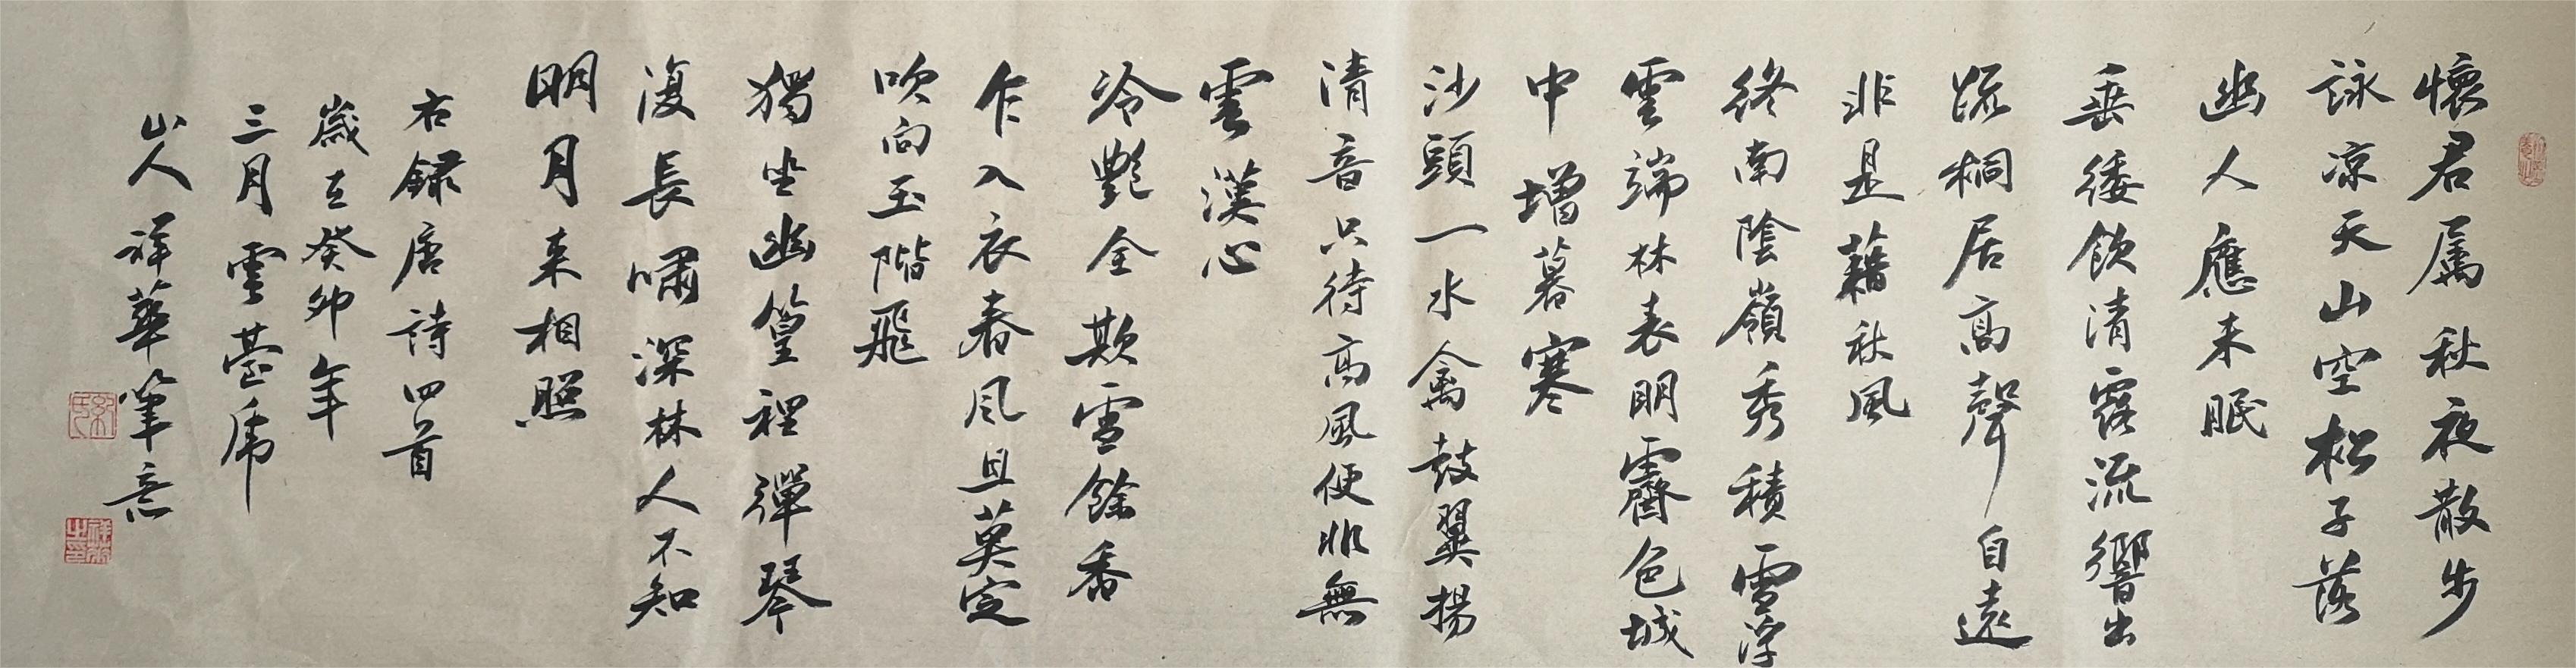 懷君属秋夜散步
詠凉天山空松子落
幽人應未眠
垂緌飲清露流響出
疏桐居高聲自遠
非是藉秋風
終南陰嶺秀積雪浮
雲端林表明霽色城
中增暮寒
沙頭一水禽鼓翼揚
清音只待高風便非無
雲漢心
冷艷全欺雪餘香
乍入衣春风且莫定
吹向玉階飛
獨坐幽篁裡彈琴
復長嘯深林人不知
明月来相照
右録唐詩四首
歲在癸卯年
三月雲臺
山人祥華筆意